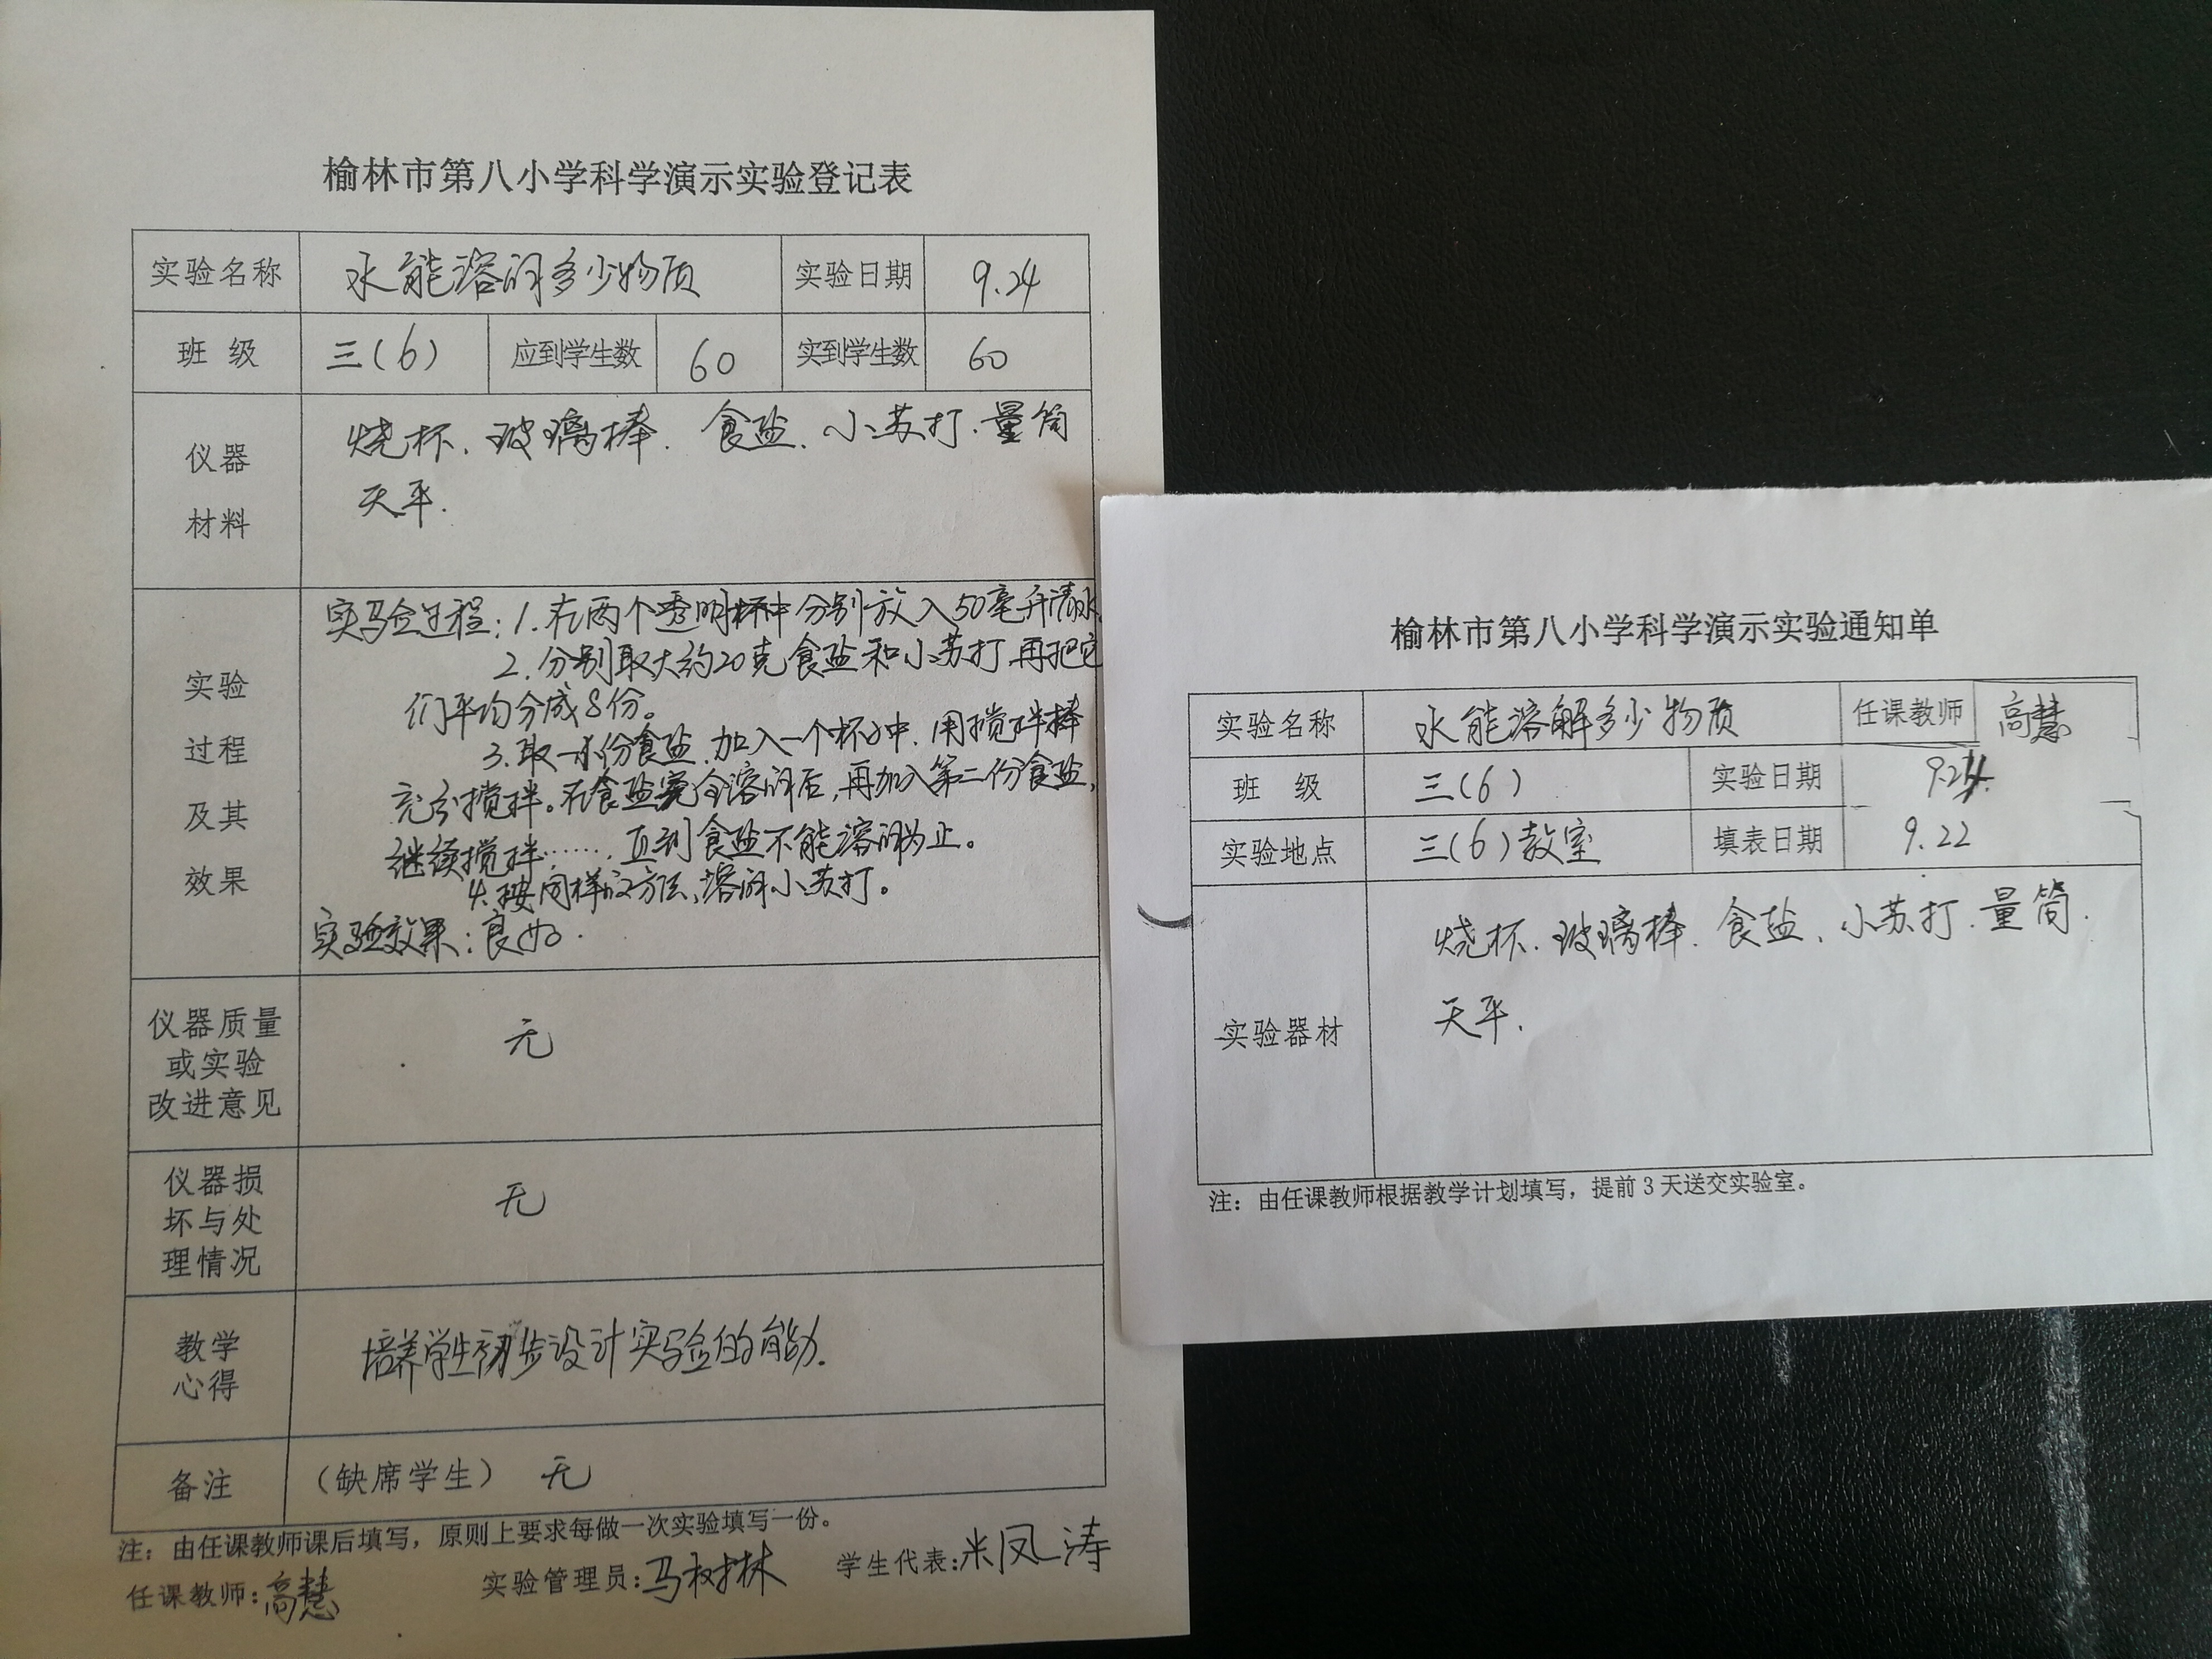 榆林市第八小学科学演示实验登记表
实验名称 水能溶解多少物质 实验日期 9.24
班 级 三(6) 应到学生数 60 实到学生数 60
仪器
材料
烧杯、玻璃棒、食盐、小苏打、量筒
天平.
实验
过程
及其
效果
实验过程:1.在两个透明杯中分别放入50毫升清水
2.分别取大约20克食盐和小苏打,再把它
们平均分成8份。
3.取一小份食盐,加入一个杯子中,用搅拌棒
充分搅拌。在食盐完全溶解后,再加入第二份食盐,
继续搅拌……,直到食盐不能溶解为止。
4.按同样的方法,溶解小苏打。
实验效果:良好.
仪器质量
或实验
改进意见
无
仪器损
坏与处
理情况
无
教学
心得
培养学生初步设计实验的能力.
备注 (缺席学生) 无
注:由任课教师课后填写,原则上要求每做一次实验填写一份。
任课教师:高慧 实验管理员:马树林 学生代表:米凤涛
榆林市第八小学科学演示实验通知单
实验名称 水能溶解多少物质 任课教师 高慧
班 级 三(6) 实验日期 9.24.
实验地点 三(6)教室 填表日期 9.22
实验器材
烧杯、玻璃棒、食盐、小苏打、量筒.
天平.
注:由任课教师根据教学计划填写,提前3天送交实验室。